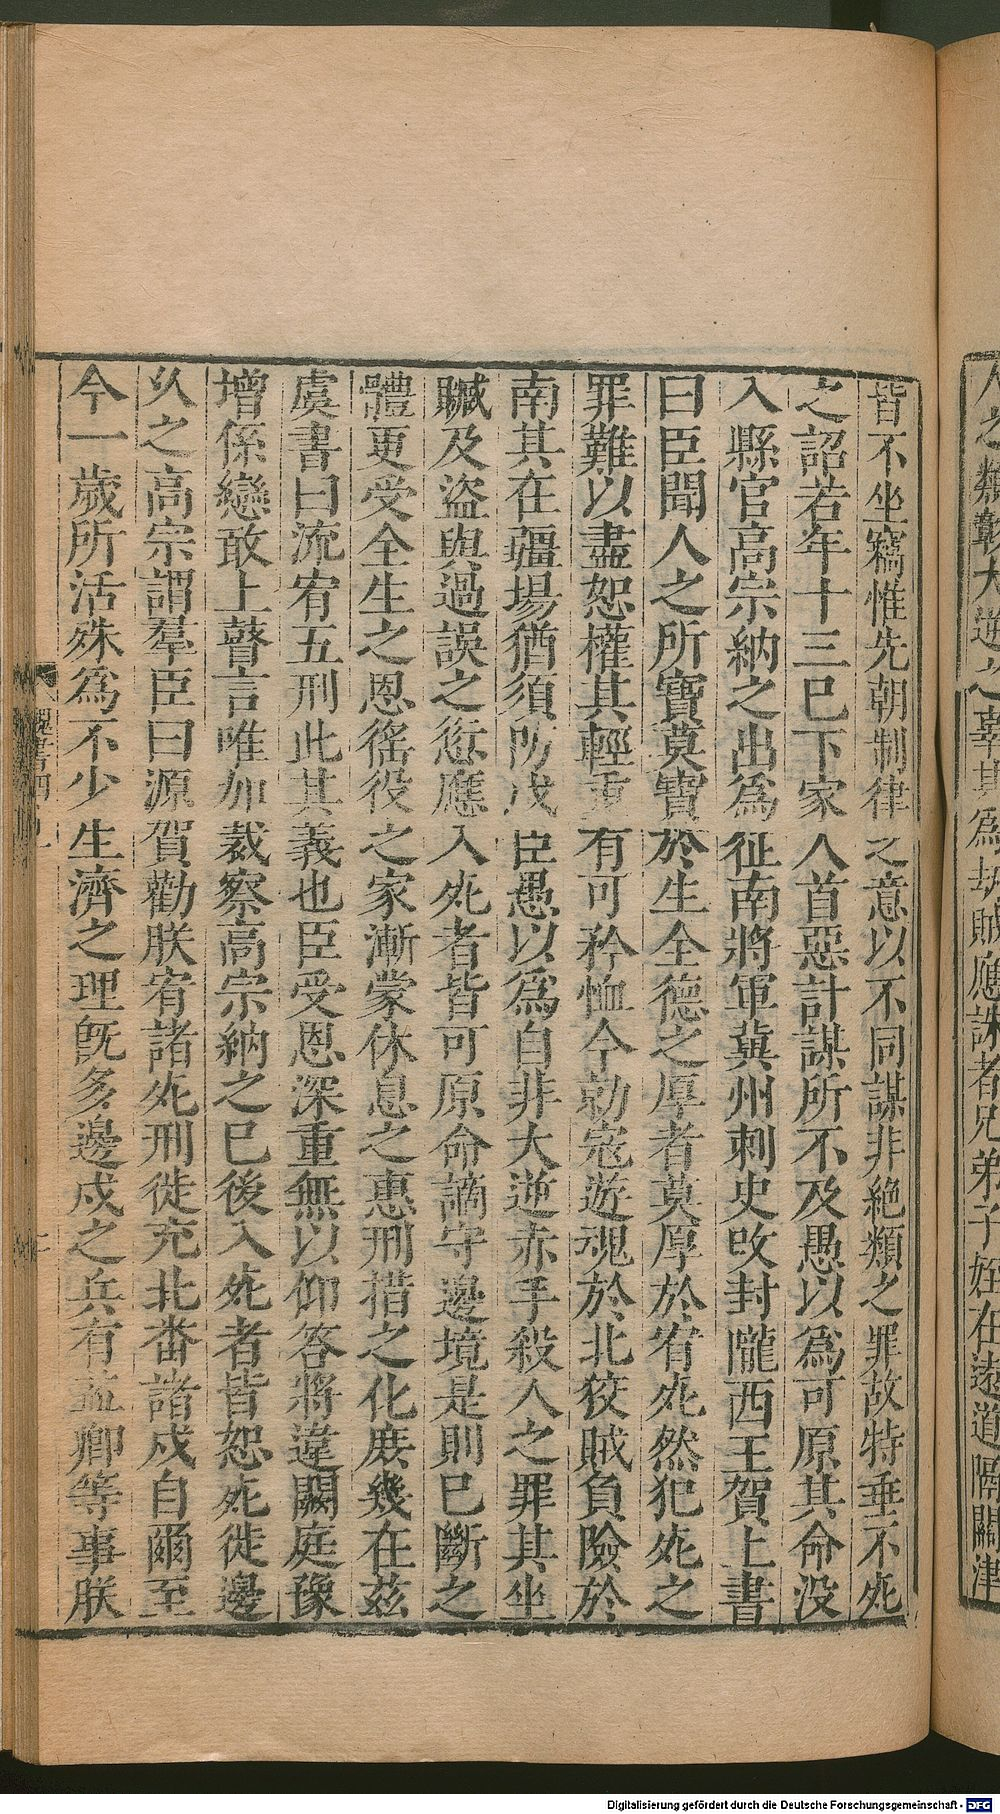 人之類彰大逆之辜其爲劫賊應誅者兄弟子姪在遠道隔關津
皆不坐竊惟先朝制律之意以不同謀非絕類之罪故特垂不死
之詔若年十三已下家人首惡計謀所不及愚以爲可原其命没
入縣官高宗納之出爲征南將軍冀州刺史改封隴西王賀上書
曰臣聞人之所寶莫寶於生全德之厚者莫厚於宥死然犯死之
罪難以盡恕權其輕重有可矜恤今勍寇遊魂於北狡賊負險於
南其在疆場猶須防戍臣愚以爲自非大逆赤手殺人之罪其坐
贓及盜與過誤之愆應入死者皆可原命謫守邊境是則已斷之
體更受全生之恩徭役之家漸蒙休息之惠刑措之化庶幾在茲
虞書曰流宥五刑此其義也臣受恩深重無以仰答將違闕庭豫
增係戀敢上瞽言唯加裁察高宗納之已後入死者皆恕死徙邊
久之高宗謂羣臣曰源賀勸朕宥諸死刑徙充北番諸戍自爾至
今一歲所活殊爲不少生濟之理旣多邊戍之兵有益卿等事朕
魏書四十一
Digitalisierung gefördert durch die Deutsche Forschungsgemeinschaft - DFG